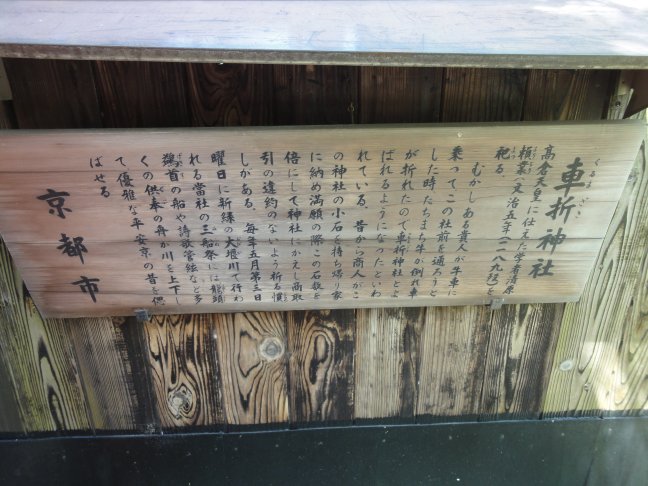 くるまざき
車折神社
高倉天皇に仕えた学者清原
頼業(文治五年(一一八九)歿)を
祀る。
むかしある貴人が牛車に
乗ってこの社前を通ろうと
した時たちまち牛が倒れ車
が折れたので車折神社とよ
ばれるようになったといわ
れている。昔から商人がこ
の神社の小石を持ち帰り家
に納め満願の際この石数を
倍にして神社にかえし商取
引の違約のないよう祈る慣
しがある。毎年五月第三日
曜日に新緑の大堰川で行わ
れる当社の三船祭には龍頭
鷁首の船や詩歌管絃など多
くの供奉の舟が川を上下し
て優雅な平安京の昔を偲
ばせる
京都市